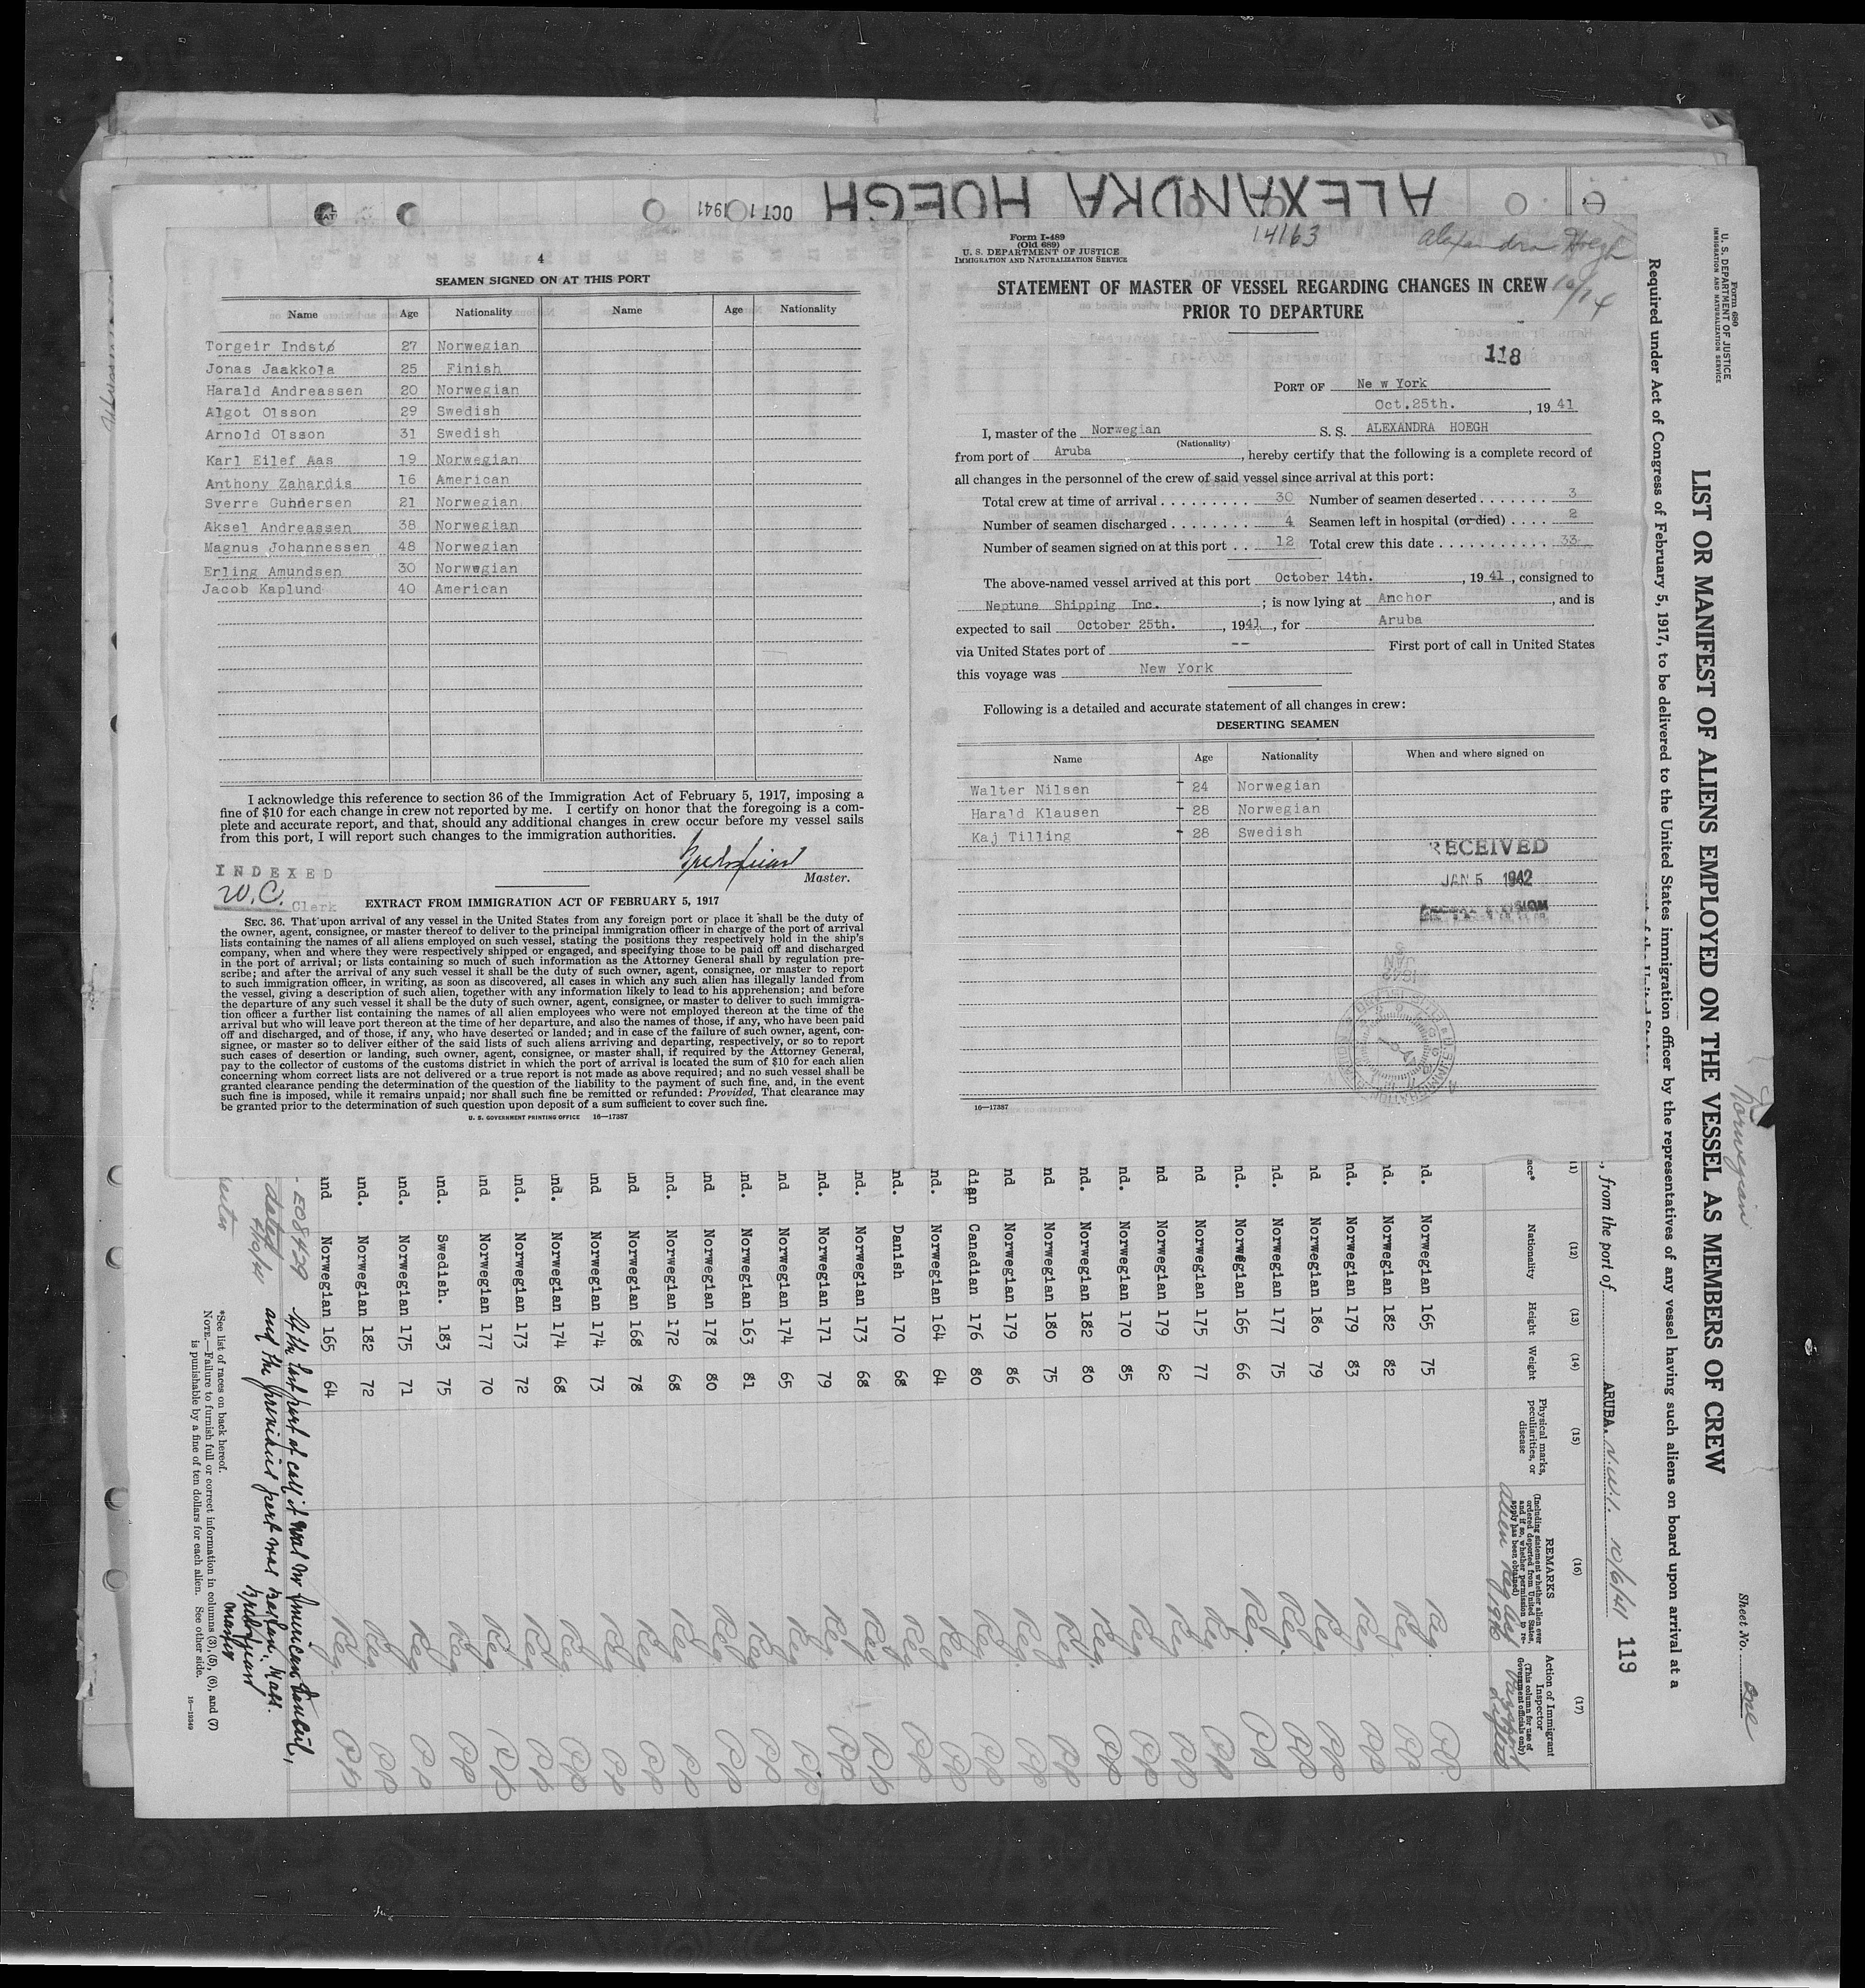 ALEXANDRA HOEGH
OCT 1 1941
4
SEAMEN SIGNED ON AT THIS PORT
Name Age Nationality Name Age Nationality
Torgeir Indstø 27 Norwegian
Jonas Jaakkola 25 Finish
Harald Andreassen 20 Norwegian
Algot Olsson 29 Swedish
Arnold Olsson 31 Swedish
Karl Eilef Aas 19 Norwegian
Anthony Zahardis 16 American
Sverre Gundersen 21 Norwegian
Aksel Andreassen 38 Norwegian
Magnus Johannessen 48 Norwegian
Erling Amundsen 30 Norwegian
Jacob Kaplund 40 American
I acknowledge this reference to section 36 of the Immigration Act of February 5, 1917, imposing a
fine of $10 for each change in crew not reported by me. I certify on honor that the foregoing is a com-
plete and accurate report, and that, should any additional changes in crew occur before my vessel sails
from this port, I will report such changes to the immigration authorities.
Master.
INDEXED
W.C. Clerk
EXTRACT FROM IMMIGRATION ACT OF FEBRUARY 5, 1917
SEC. 36. That upon arrival of any vessel in the United States from any foreign port or place it shall be the duty of
the owner, agent, consignee, or master thereof to deliver to the principal immigration officer in charge of the port of arrival
lists containing the names of all aliens employed on such vessel, stating the positions they respectively hold in the ship's
company, when and where they were respectively shipped or engaged, and specifying those to be paid off and discharged
in the port of arrival; or lists containing so much of such information as the Attorney General shall by regulation pre-
scribe; and after the arrival of any such vessel it shall be the duty of such owner, agent, consignee, or master to report
to such immigration officer, in writing, as soon as discovered, all cases in which any such alien has illegally landed from
the vessel, giving a description of such alien, together with any information likely to lead to his apprehension; and before
the departure of any such vessel it shall be the duty of such owner, agent, consignee, or master to deliver to such immigra-
tion officer a further list containing the names of all alien employees who were not employed thereon at the time of the
arrival but who will leave port thereon at the time of her departure, and also the names of those, if any, who have been paid
off and discharged, and of those, if any, who have deserted or landed; and in case of the failure of such owner, agent, con-
signee, or master so to deliver either of the said lists of such aliens arriving and departing, respectively, or so to report
such cases of desertion or landing, such owner, agent, consignee, or master shall, if required by the Attorney General,
pay to the collector of customs of the customs district in which the port of arrival is located the sum of $10 for each alien
concerning whom correct lists are not delivered or a true report is not made as above required; and no such vessel shall be
granted clearance pending the determination of the question of the liability to the payment of such fine, and, in the event
such fine is imposed, while it remains unpaid; nor shall such fine be remitted or refunded: Provided, That clearance may
be granted prior to the determination of such question upon deposit of a sum sufficient to cover such fine.
U. S. GOVERNMENT PRINTING OFFICE 16—17387
Form I-489
(Old 689)
U. S. DEPARTMENT OF JUSTICE
IMMIGRATION AND NATURALIZATION SERVICE
14163
Alexandra Hoegh
10/14
STATEMENT OF MASTER OF VESSEL REGARDING CHANGES IN CREW
PRIOR TO DEPARTURE
118
PORT OF Ne w York
Oct.25th., 19 41
I, master of the Norwegian S. S. ALEXANDRA HOEGH
(Nationality)
from port of Aruba, hereby certify that the following is a complete record of
all changes in the personnel of the crew of said vessel since arrival at this port:
Total crew at time of arrival 30 Number of seamen deserted 3
Number of seamen discharged 4 Seamen left in hospital (or died) 2
Number of seamen signed on at this port 12 Total crew this date 33
The above-named vessel arrived at this port October 14th., 19 41, consigned to
Neptune Shipping Inc.; is now lying at Anchor, and is
expected to sail October 25th., 1941, for Aruba
via United States port of -- First port of call in United States
this voyage was New York
Following is a detailed and accurate statement of all changes in crew:
DESERTING SEAMEN
Name Age Nationality When and where signed on
Walter Nilsen 24 Norwegian
Harald Klausen 28 Norwegian
Kaj Tilling 28 Swedish
RECEIVED
JAN 5 1942
16—17387
Form 680
U. S. DEPARTMENT OF JUSTICE
IMMIGRATION AND NATURALIZATION SERVICE
Norwegian
Sheet No. One
LIST OR MANIFEST OF ALIENS EMPLOYED ON THE VESSEL AS MEMBERS OF CREW
Required under Act of Congress of February 5, 1917, to be delivered to the United States immigration officer by the representatives of any vessel having such aliens on board upon arrival at a
, from the port of ARUBA. N.W.I. 10/6/41 119
(12) (13) (14) (15) (16) (17)
Nationality Height Weight Physical marks, peculiarities, or disease REMARKS (Including statement whether alien ever ordered deported from United States, and if so, whether permission to re-apply has been obtained) Action of Immigrant Inspector (This column for use of Government officials only)
Alien Reg Act 1940
nd. Norwegian 165 75 Reg.
nd. Norwegian 182 82 Reg.
nd. Norwegian 179 83 Reg.
nd Norwegian 180 79 Reg.
nd. Norwegian 177 75 Reg.
nd. Norwegian 165 66 Reg.
nd Norwegian 175 77 Reg.
nd Norwegian 179 62 Reg.
nd. Norwegian 170 85 Reg.
nd. Norwegian 182 80 Reg.
nd Norwegian 180 75 Reg.
nd Norwegian 179 86 Reg.
dian Canadian 176 80 Reg.
nd. Norwegian 164 64 Reg.
nd. Danish 170 68 Reg.
nd. Norwegian 173 68 Reg.
nd. Norwegian 171 79 Reg.
nd Norwegian 174 65 Reg.
nd. Norwegian 163 81 Reg.
nd Norwegian 178 80 Reg.
nd. Norwegian 172 68 Reg.
nd Norwegian 168 78 Reg.
nd Norwegian 174 73 Reg.
nd. Norwegian 174 68 Reg.
nd. Norwegian 173 72 Reg.
nd Norwegian 177 70 Reg.
nd. Swedish. 183 75 Reg.
nd. Norwegian 175 71 Reg.
nd. Norwegian 182 72 Reg.
and Norwegian 165 64 Reg.
At the last port of call it was no American Consul,
and the previous port was Boston, Mass.
Master
*See list of races on back hereof.
NOTE.—Failure to furnish full or correct information in columns (3), (5), (6), and (7)
is punishable by a fine of ten dollars for each alien. See other side.
16—19349